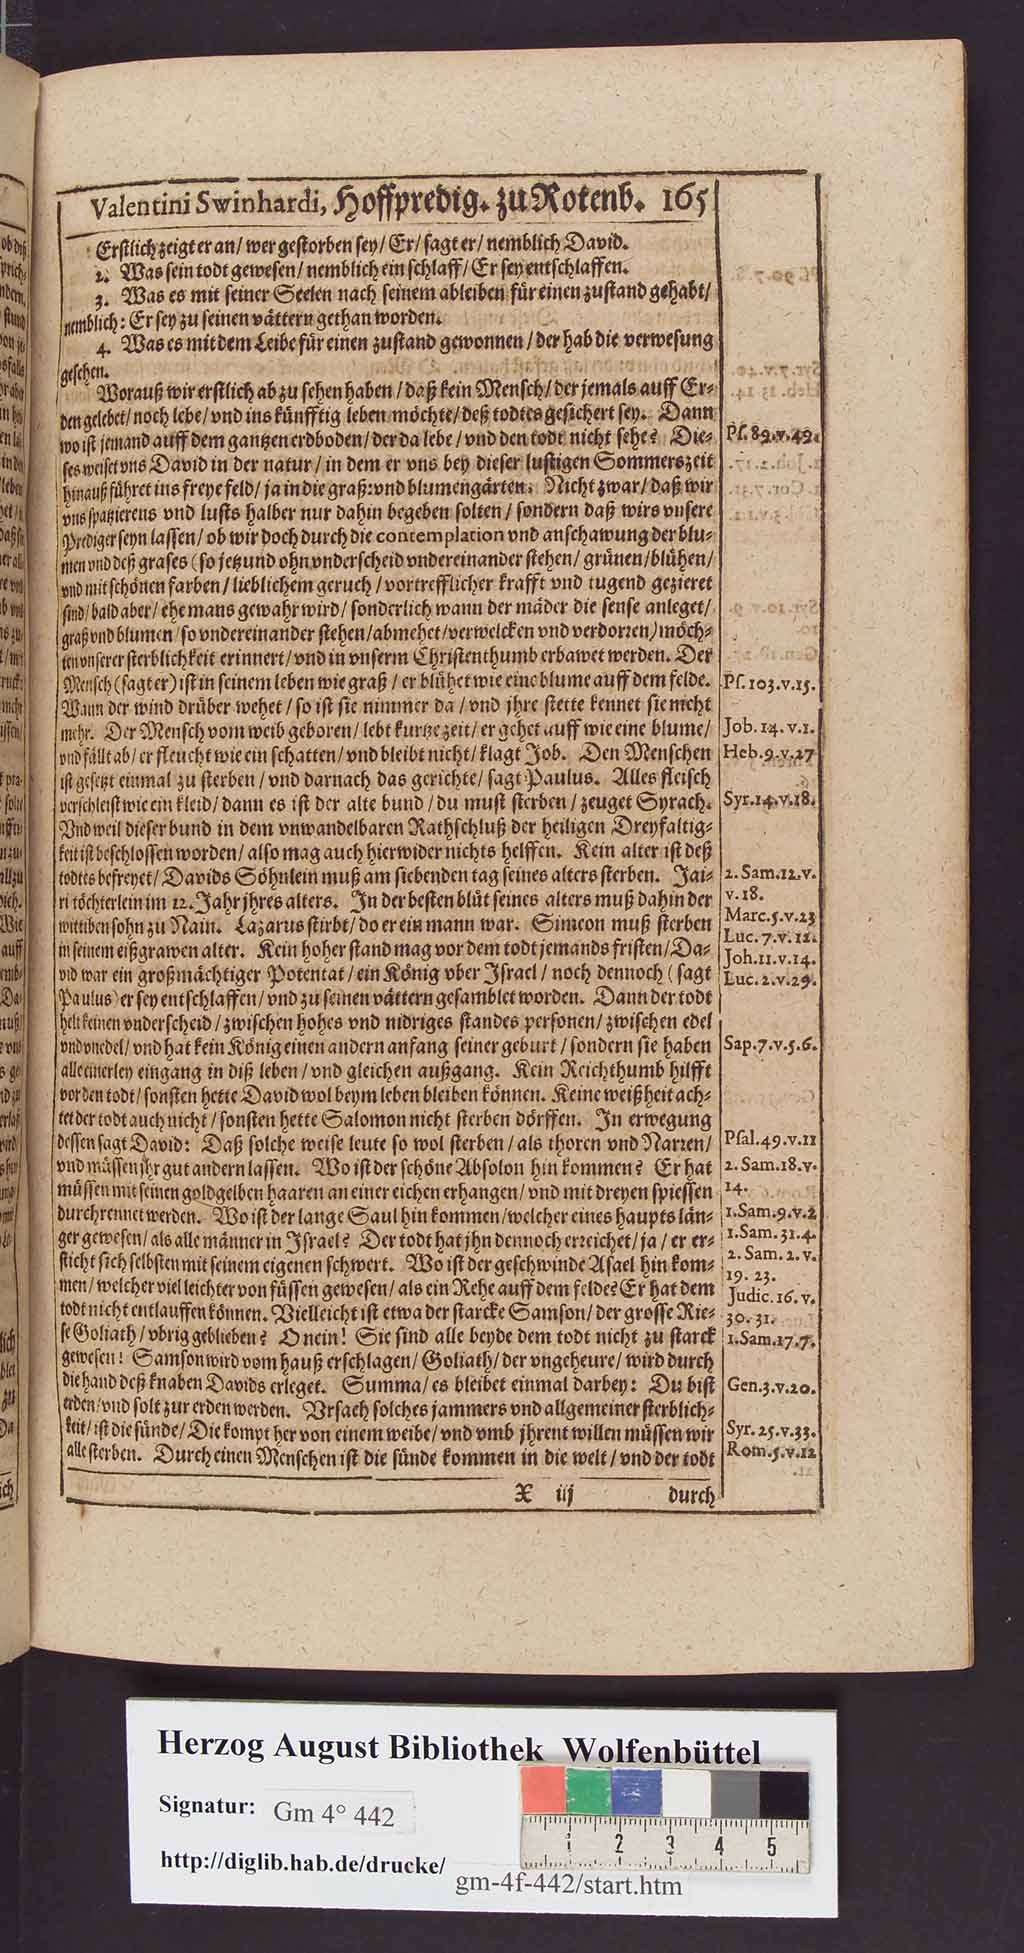 Valentini Swinhardi, Hoffpredig. zu Rotenb. 165
Erstlich zeigt er an / wer gestorben sey / Er / sagt er / nemblich David.
2. Was sein todt gewesen / nemblich ein schlaff / Er sey entschlaffen.
3. Was es mit seiner Seelen nach seinem ableiben für einen zustand gehabt /
nemblich: Er sey zu seinen vättern gethan worden.
4. Was es mit dem Leibe für einen zustand gewonnen / der hab die verwesung
gesehen.
Worauß wir erstlich ab zu sehen haben / daß kein Mensch / der jemals auff Er-
den gelebet / noch lebe / vnd ins künfftig leben möchte / deß todtes gesichert sey. Dann
wo ist jemand auff dem gantzen erdboden / der da lebe / vnd den todt nicht sehe? Die-
ses weiset vns David in der natur / in dem er vns bey dieser lustigen Sommerszeit
hinauß führet ins freye feld / ja in die graß: vnd blumengärten. Nicht zwar / daß wir
vns spatzierens vnd lusts halber nur dahin begeben solten / sondern daß wirs vnsere
Prediger seyn lassen / ob wir doch durch die contemplation vnd anschawung der blu-
men vnd deß grases (so jetzund ohn vnderscheid vndereinander stehen / grünen / blühen /
vnd mit schönen farben / lieblichem geruch / vortrefflicher krafft vnd tugend gezieret
sind / bald aber / ehe mans gewahr wird / sonderlich wann der mäder die sense anleget /
graß vnd blumen / so vndereinander stehen / abmehet / verwelcken vnd verdorren) möch-
ten vnserer sterblichkeit erinnert / vnd in vnserm Christenthumb erbawet werden. Der
Mensch (sagt er) ist in seinem leben wie graß / er blühet wie eine blume auff dem felde.
Wann der wind drüber wehet / so ist sie nimmer da / vnd jhre stette kennet sie nicht
mehr. Der Mensch vom weib geboren / lebt kurtze zeit / er gehet auff wie eine blume /
vnd fällt ab / er fleucht wie ein schatten / vnd bleibt nicht / klagt Job. Den Menschen
ist gesetzt einmal zu sterben / vnd darnach das gerichte / sagt Paulus. Alles fleisch
verschleist wie ein kleid / dann es ist der alte bund / du must sterben / zeuget Syrach.
Vnd weil dieser bund in dem vnwandelbaren Rathschluß der heiligen Dreyfaltig-
keit ist beschlossen worden / also mag auch hierwider nichts helffen. Kein alter ist deß
todtes befreyet / Davids Söhnlein muß am siebenden tag seines alters sterben. Jai-
ri töchterlein im 12. Jahr jhres alters. In der besten blüt seines alters muß dahin der
wittiben sohn zu Nain. Lazarus stirbt / do er ein mann war. Simeon muß sterben
in seinem eißgrawen alter. Kein hoher stand mag vor dem todt jemands fristen / Da-
vid war ein großmächtiger Potentat / ein König vber Israel / noch dennoch (sagt
Paulus) er sey entschlaffen / vnd zu seinen vättern gesamblet worden. Dann der todt
helt keinen vnderscheid / zwischen hohes vnd nidriges standes personen / zwischen edel
vnd vnedel / vnd hat kein König einen andern anfang seiner geburt / sondern sie haben
alle einerley eingang in diß leben / vnd gleichen außgang. Kein Reichthumb hilfft
vor den todt / sonsten hette David wol beym leben bleiben können. Keine weißheit ach-
tet der todt auch nicht / sonsten hette Salomon nicht sterben dörffen. In erwegung
dessen sagt David: Daß solche weise leute so wol sterben / als thoren vnd Narren /
vnd müssen jhr gut andern lassen. Wo ist der schöne Absolon hin kommen? Er hat
müssen mit seinen goldgelben haaren an einer eichen erhangen / vnd mit dreyen spiessen
durchrennet werden. Wo ist der lange Saul hin kommen / welcher eines haupts län-
ger gewesen / als alle männer in Israel? Der todt hat jhn dennoch erreichet / ja / er er-
sticht sich selbsten mit seinem eigenen schwert. Wo ist der geschwinde Asael hin kom-
men / welcher viel leichter von füssen gewesen / als ein Rehe auff dem felde? Er hat dem
todt nicht entlauffen können. Vielleicht ist etwa der starcke Samson / der grosse Rie-
se Goliath / vbrig geblieben? O nein! Sie sind alle beyde dem todt nicht zu starck
gewesen! Samson wird vom hauß erschlagen / Goliath / der vngeheure / wird durch
die hand deß knaben Davids erleget. Summa / es bleibet einmal darbey: Du bist
erden / vnd solt zur erden werden. Vrsach solches jammers vnd allgemeiner sterblich-
keit / ist die sünde / Die kompt her von einem weibe / vnd vmb jhrent willen müssen wir
alle sterben. Durch einen Menschen ist die sünde kommen in die welt / vnd der todt
X iij durch
Ps. 89. v. 49.
Ps. 103. v. 15.
Job. 14. v. 1.
Heb. 9. v. 27
Syr. 14. v. 18.
2. Sam. 12. v.
v. 18.
Marc. 5. v. 23
Luc. 7. v. 12.
Joh. 11. v. 14.
Luc. 2. v. 29.
Sap. 7. v. 5. 6.
Psal. 49. v. 11
2. Sam. 18. v.
14.
1. Sam. 9. v. 2
1. Sam. 31. 4.
2. Sam. 2. v.
19. 23.
Judic. 16. v.
30. 31.
1. Sam. 17. 7.
Gen. 3. v. 20.
Syr. 25. v. 33.
Rom. 5. v. 12
Herzog August Bibliothek Wolfenbüttel
Signatur: Gm 4° 442
http://diglib.hab.de/drucke/
gm-4f-442/start.htm
1 2 3 4 5